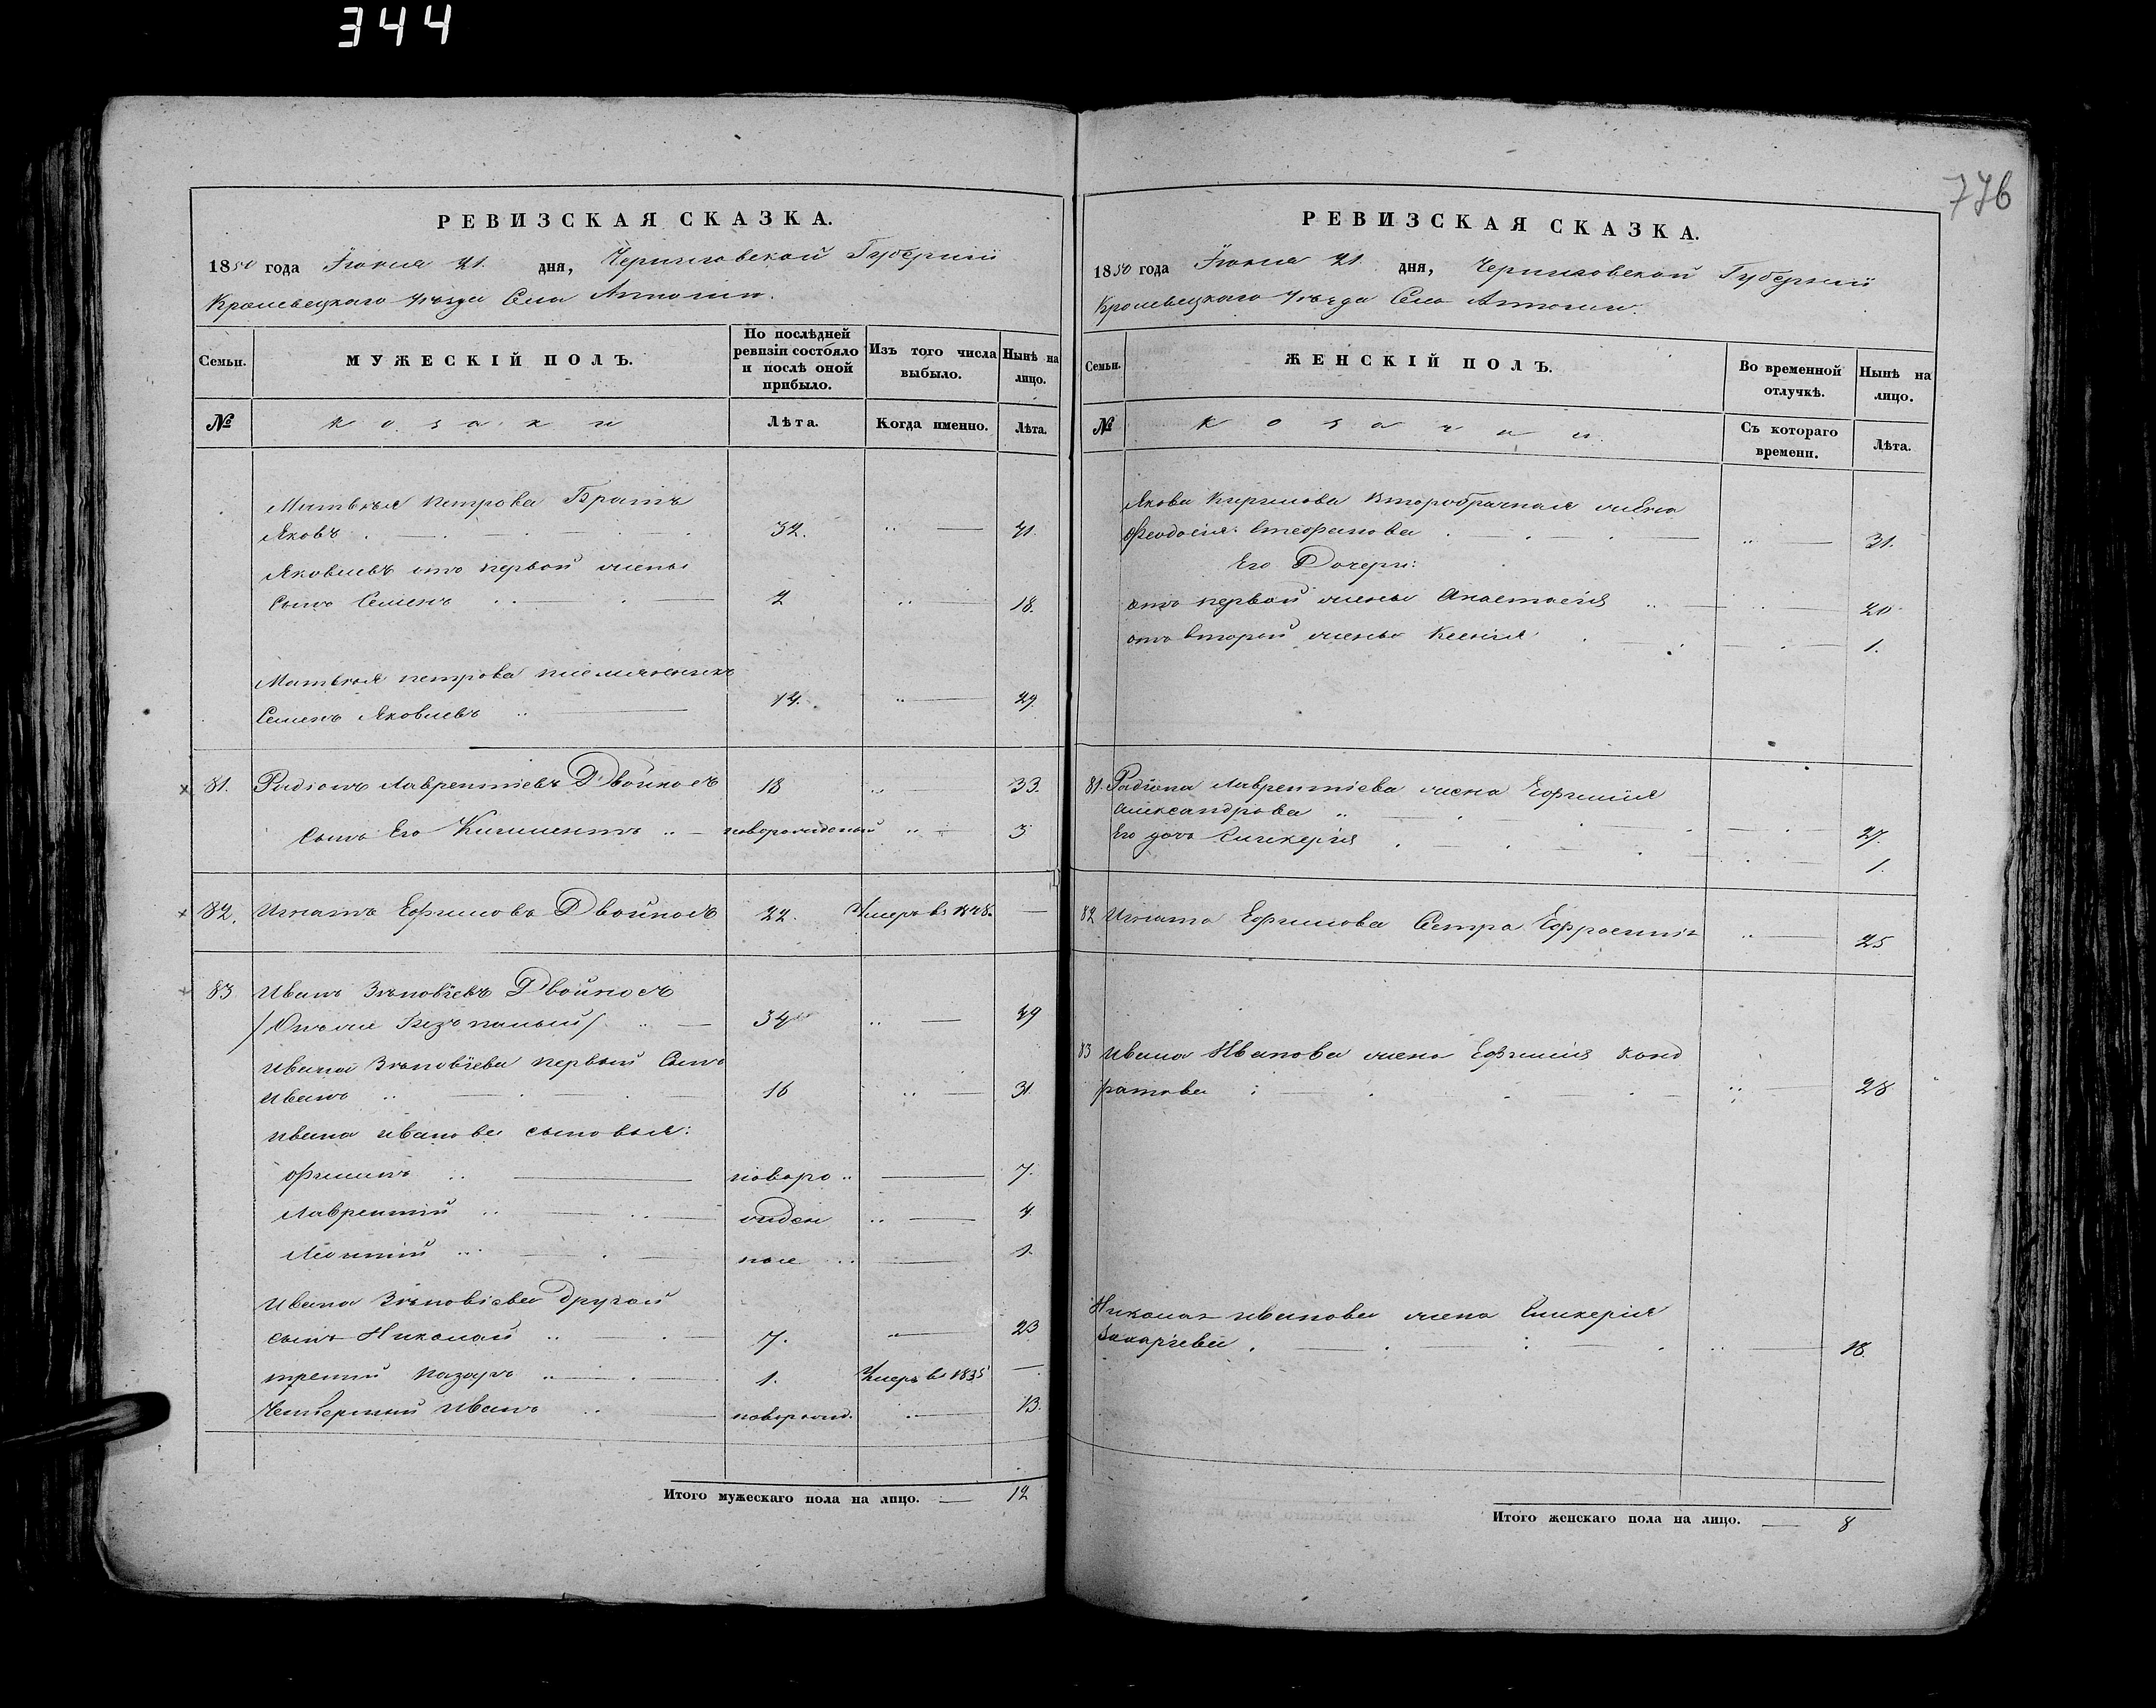 344
776
РЕВИЗСКАЯ СКАЗКА.
1850 года Іюня 21. дня, Черниговской Губерніи
Кролевецкаго уѣзда Села
Семьи.
МУЖЕСКІЙ ПОЛЪ.
По послѣдней ревизіи состояло и послѣ оной прибыло.
Изъ того числа выбыло.
Нынѣ на лицо.
№
Козаки
Лѣта.
Когда именно.
Лѣта.
Матвѣя Петрова Братъ
Яковъ 32. 
Яковлевъ отъ первой жены
сынъ Семенъ 2 18.
Матвѣя Петрова племянникъ
Семенъ Яковлевъ 14. 29
81. Радіонъ Лаврентіевъ Двойносъ 18 33.
Сынъ Его Климентъ новорожденный 3
82. Игнатъ Ефимовъ Двойносъ 22. Умеръ въ 1848.
83 Иванъ Зѣновіевъ Двойносъ
34 49
Ивана Зѣновіева первый Сынъ
Иванъ 16 31
Ивана Иванова сыновья:
Ефимъ новоро 7.
Лаврентій жден 4
Леонтій ные 1.
Ивана Зѣновіева другой
сынъ Николай 7. 23
третій Назаръ 1. Умеръ въ 1835
Четвертый Иванъ новорожд. 13.
Итого мужескаго пола на лицо. 12
РЕВИЗСКАЯ СКАЗКА.
1850 года Іюня 21. дня, Черниговской Губерніи
Кролевецкаго уѣзда Села
Семьи.
ЖЕНСКІЙ ПОЛЪ.
Во временной отлучкѣ.
Нынѣ на лицо.
№
Козачки.
Съ котораго времени.
Лѣта.
Якова второбрачная жена
Феодосія Стефанова 31.
Его Дочери:
отъ первой жены Анастасія 20
отъ второй жены Ксенія 1.
81. Радіона Лаврентіева жена Ефимія
Александрова 27.
Его дочь Гликерія 1.
82 Игната Ефимова Сестра Ефросинія 25
83 Ивана Иванова жена Ефимія Конд
ратова 28
Николая Иванова жена Гликерія
Захаріева 18.
Итого женскаго пола на лицо. 8